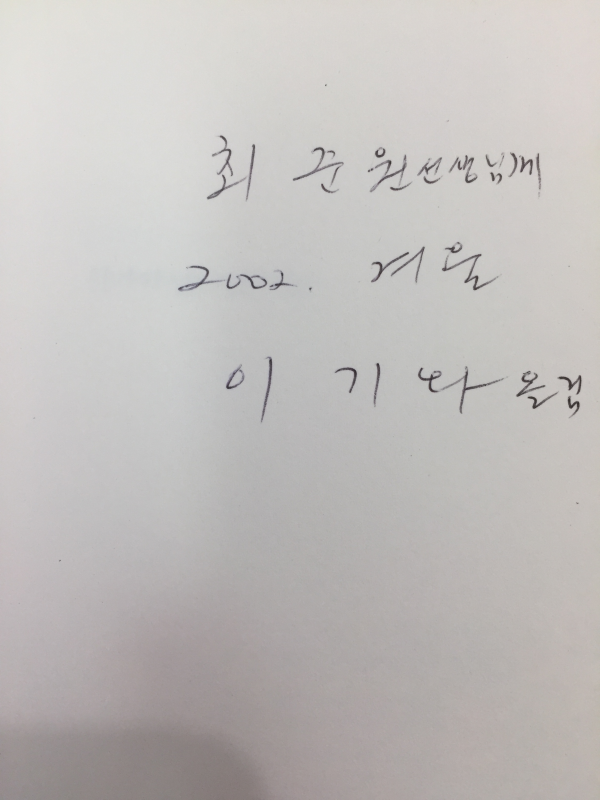 최 준 원 선생님께
2002. 겨울
이 기 와 올림